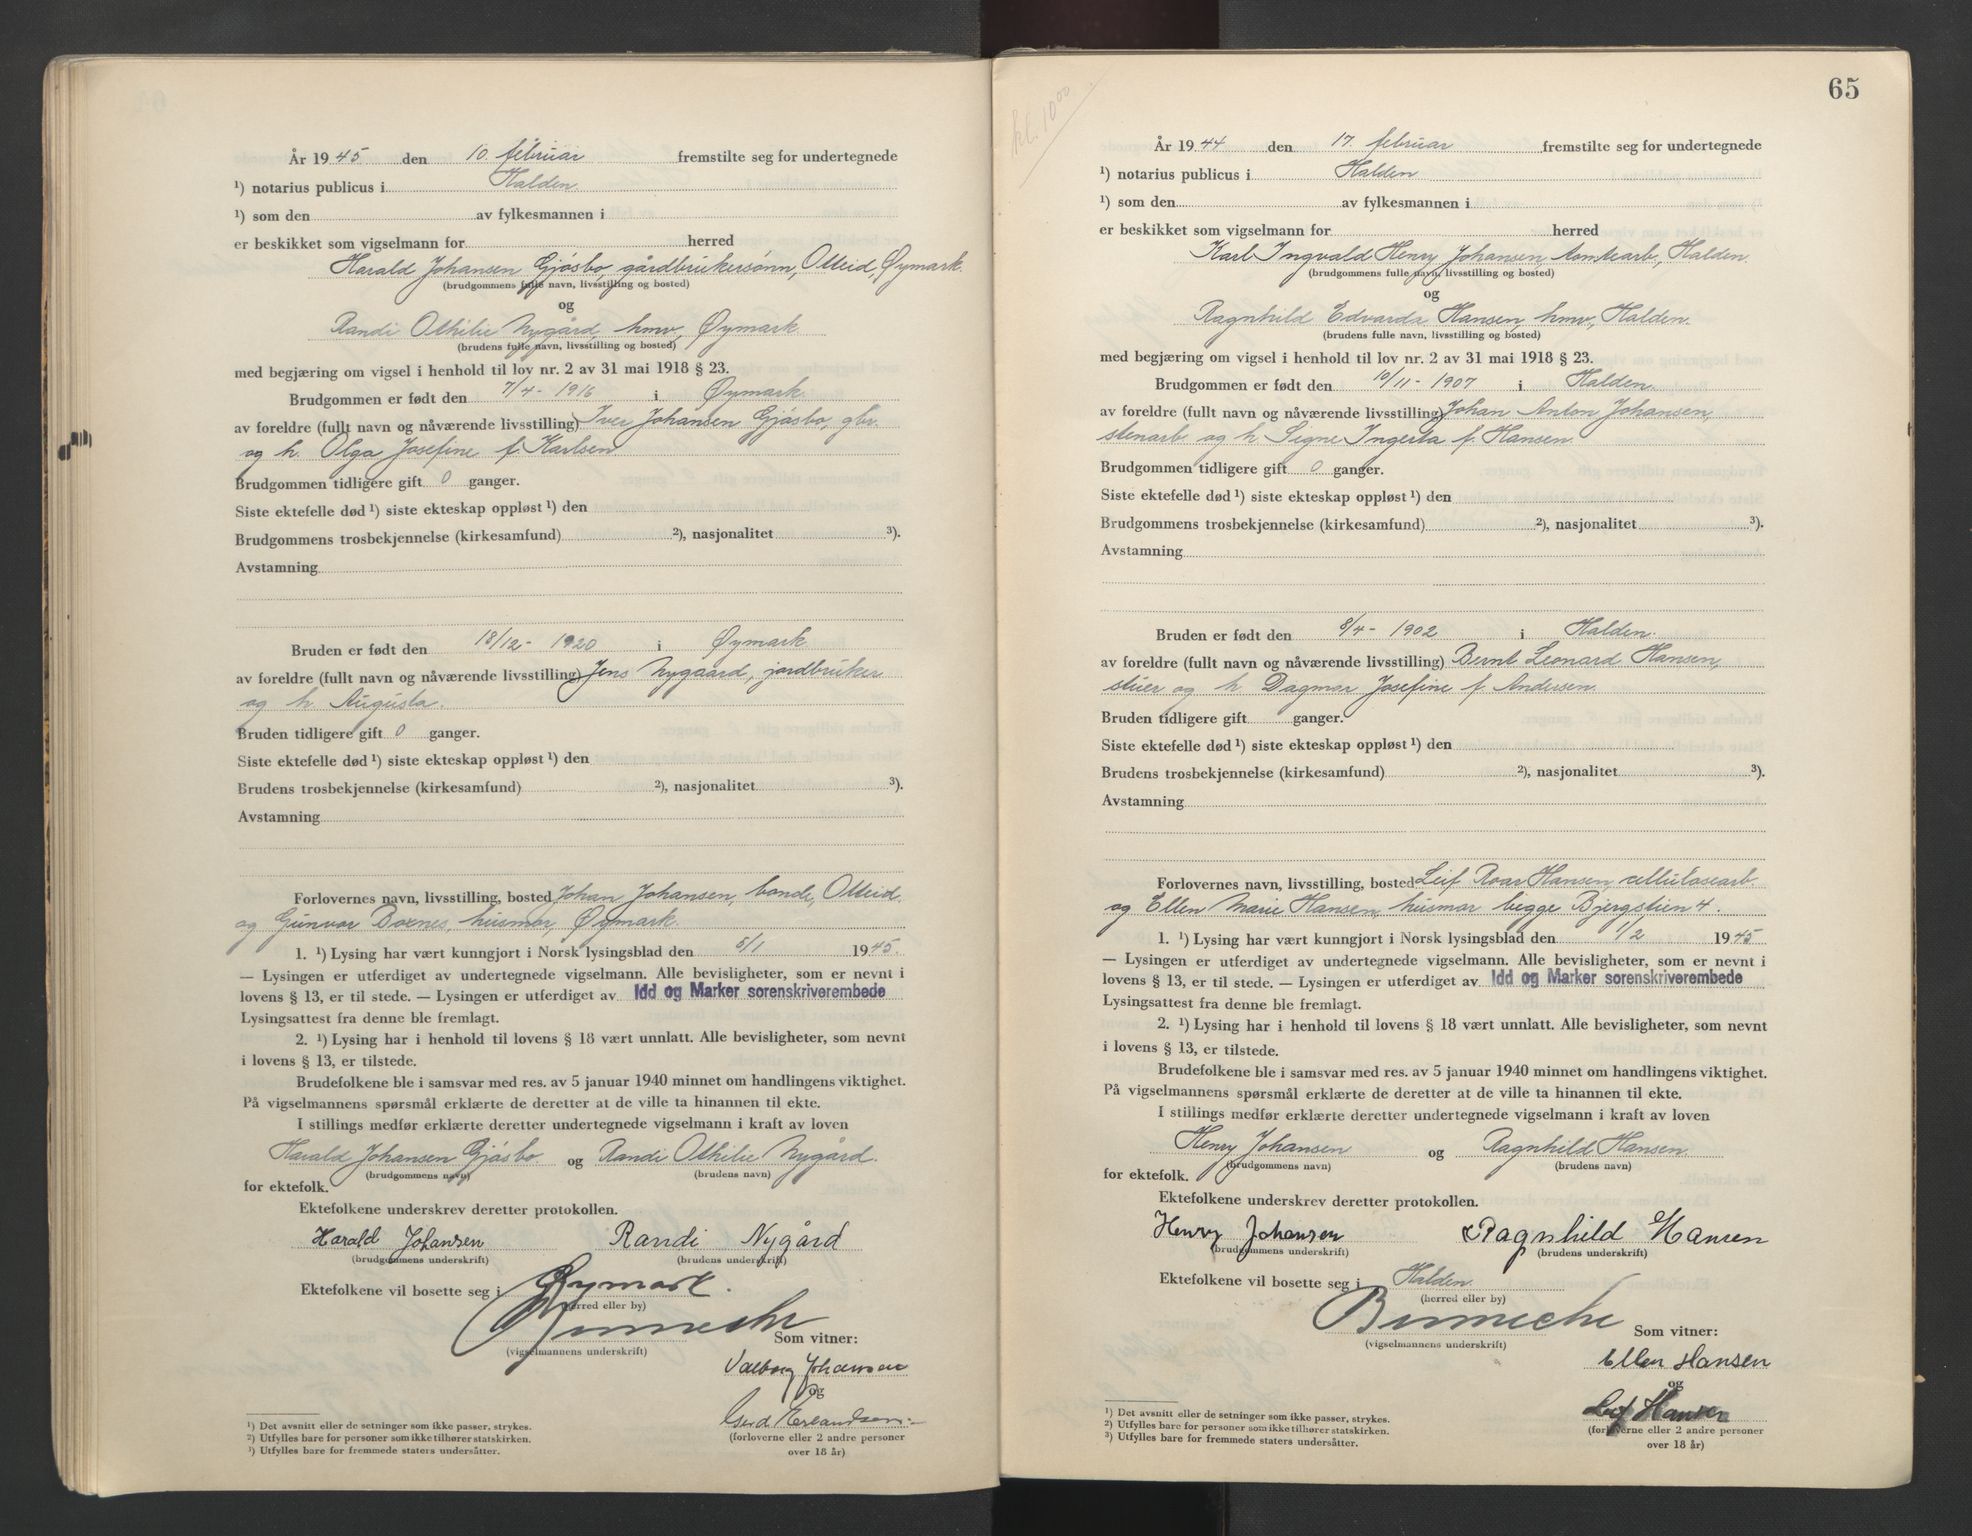 År 1945 den 10. februar fremstilte seg for undertegnede
¹) notarius publicus i Halden
¹) som den av fylkesmannen i
er beskikket som vigselmann for herred
Harald Johansen Gjøsbo, gårdbrukersønn, Otteid, Øymark.
(brudgommens fulle navn, livsstilling og bosted)
og
Randi Othilie Nygård, hmv, Øymark.
(brudens fulle navn, livsstilling og bosted)
med begjæring om vigsel i henhold til lov nr. 2 av 31 mai 1918 § 23.
Brudgommen er født den 7/4 - 1916 i Øymark.
av foreldre (fullt navn og nåværende livsstilling) Iver Johansen Gjøsbo, gbr.
og h. Olga Josefine f. Karlsen
Brudgommen tidligere gift 0 ganger.
Siste ektefelle død ¹) siste ekteskap oppløst ¹) den
Brudgommens trosbekjennelse (kirkesamfund) ²), nasjonalitet ³).
Avstamning
Bruden er født den 18/12 - 1920 i Øymark
av foreldre (fullt navn og nåværende livsstilling) Jens Nygaard, jordbruker
og h. Augusta.
Bruden tidligere gift 0 ganger.
Siste ektefelle død ¹) siste ekteskap oppløst ¹) den
Brudens trosbekjennelse (kirkesamfund) ²), nasjonalitet ³).
Avstamning
Forlovernes navn, livsstilling, bosted Johan Johansen, bonde, Otteid
og Gunvor Boxnes, husmor, Øymark.
1. ¹) Lysing har vært kunngjort i Norsk lysingsblad den 5/1 1945.
— Lysingen er utferdiget av undertegnede vigselmann. Alle bevisligheter, som er nevnt i
lovens § 13, er til stede. — Lysingen er utferdiget av Idd og Marker sorenskriverembede
Lysingsattest fra denne ble fremlagt.
2. ¹) Lysing har i henhold til lovens § 18 vært unnlatt. Alle bevisligheter, som nevnt
i lovens § 13, er tilstede.
Brudefolkene ble i samsvar med res. av 5 januar 1940 minnet om handlingens viktighet.
På vigselmannens spørsmål erklærte de deretter at de ville ta hinannen til ekte.
I stillings medfør erklærte deretter undertegnede vigselmann i kraft av loven
Harald Johansen Gjøsbo og Randi Othilie Nygård.
(brudgommens navn) (brudens navn)
for ektefolk.
Ektefolkene underskrev deretter protokollen.
Harald Johansen Randi Nygård
(brudgommens underskrift) (brudens underskrift)
Ektefolkene vil bosette seg i Øymark.
(herred eller by)
Som vitner:
(vigselmannens underskrift)
Valborg Johansen
og
Gerd Kerlandsen
(forloverne eller 2 andre personer
over 18 år)
¹) Det avsnitt eller de setninger som ikke passer, strykes.
²) Utfylles bare for personer som ikke tilhører statskirken.
³) Utfylles bare for fremmede staters undersåtter.
65
kl. 10⁰⁰
År 1944 den 17. februar fremstilte seg for undertegnede
¹) notarius publicus i Halden
¹) som den av fylkesmannen i
er beskikket som vigselmann for herred
Karl Ingvald Henry Johansen, tomtearb., Halden.
(brudgommens fulle navn, livsstilling og bosted)
og
Ragnhild Edvarda Hansen, hmv, Halden.
(brudens fulle navn, livsstilling og bosted)
med begjæring om vigsel i henhold til lov nr. 2 av 31 mai 1918 § 23.
Brudgommen er født den 19/11 - 1907 i Halden.
av foreldre (fullt navn og nåværende livsstilling) Johan Anton Johansen,
stenarb. og h. Signe Ingerta f. Hansen.
Brudgommen tidligere gift 0 ganger.
Siste ektefelle død ¹) siste ekteskap oppløst ¹) den
Brudgommens trosbekjennelse (kirkesamfund) ²), nasjonalitet ³).
Avstamning
Bruden er født den 8/4 - 1902 i Halden.
av foreldre (fullt navn og nåværende livsstilling) Bernt Leonard Hansen,
stuer og h. Dagmar Josefine f. Andersen.
Bruden tidligere gift ganger.
Siste ektefelle død ¹) siste ekteskap oppløst ¹) den
Brudens trosbekjennelse (kirkesamfund) ²), nasjonalitet ³).
Avstamning
Forlovernes navn, livsstilling, bosted Leif Roar Hansen, cellulosearb.
og Ellen Marie Hansen, husmor begge Bjergstien 4.
1. ¹) Lysing har vært kunngjort i Norsk lysingsblad den 1/2 1945
— Lysingen er utferdiget av undertegnede vigselmann. Alle bevisligheter, som er nevnt i
lovens § 13, er til stede. — Lysingen er utferdiget av Idd og Marker sorenskriverembede
Lysingsattest fra denne ble fremlagt.
2. ¹) Lysing har i henhold til lovens § 18 vært unnlatt. Alle bevisligheter, som nevnt
i lovens § 13, er tilstede.
Brudefolkene ble i samsvar med res. av 5 januar 1940 minnet om handlingens viktighet.
På vigselmannens spørsmål erklærte de deretter at de ville ta hinannen til ekte.
I stillings medfør erklærte deretter undertegnede vigselmann i kraft av loven
Henry Johansen og Ragnhild Hansen.
(brudgommens navn) (brudens navn)
for ektefolk.
Ektefolkene underskrev deretter protokollen.
Henry Johansen Ragnhild Hansen
(brudgommens underskrift) (brudens underskrift)
Ektefolkene vil bosette seg i Halden.
(herred eller by)
Som vitner:
(vigselmannens underskrift)
Ellen Hansen
og
Leif Hansen
(forloverne eller 2 andre personer
over 18 år)
¹) Det avsnitt eller de setninger som ikke passer, strykes.
²) Utfylles bare for personer som ikke tilhører statskirken.
³) Utfylles bare for fremmede staters undersåtter.